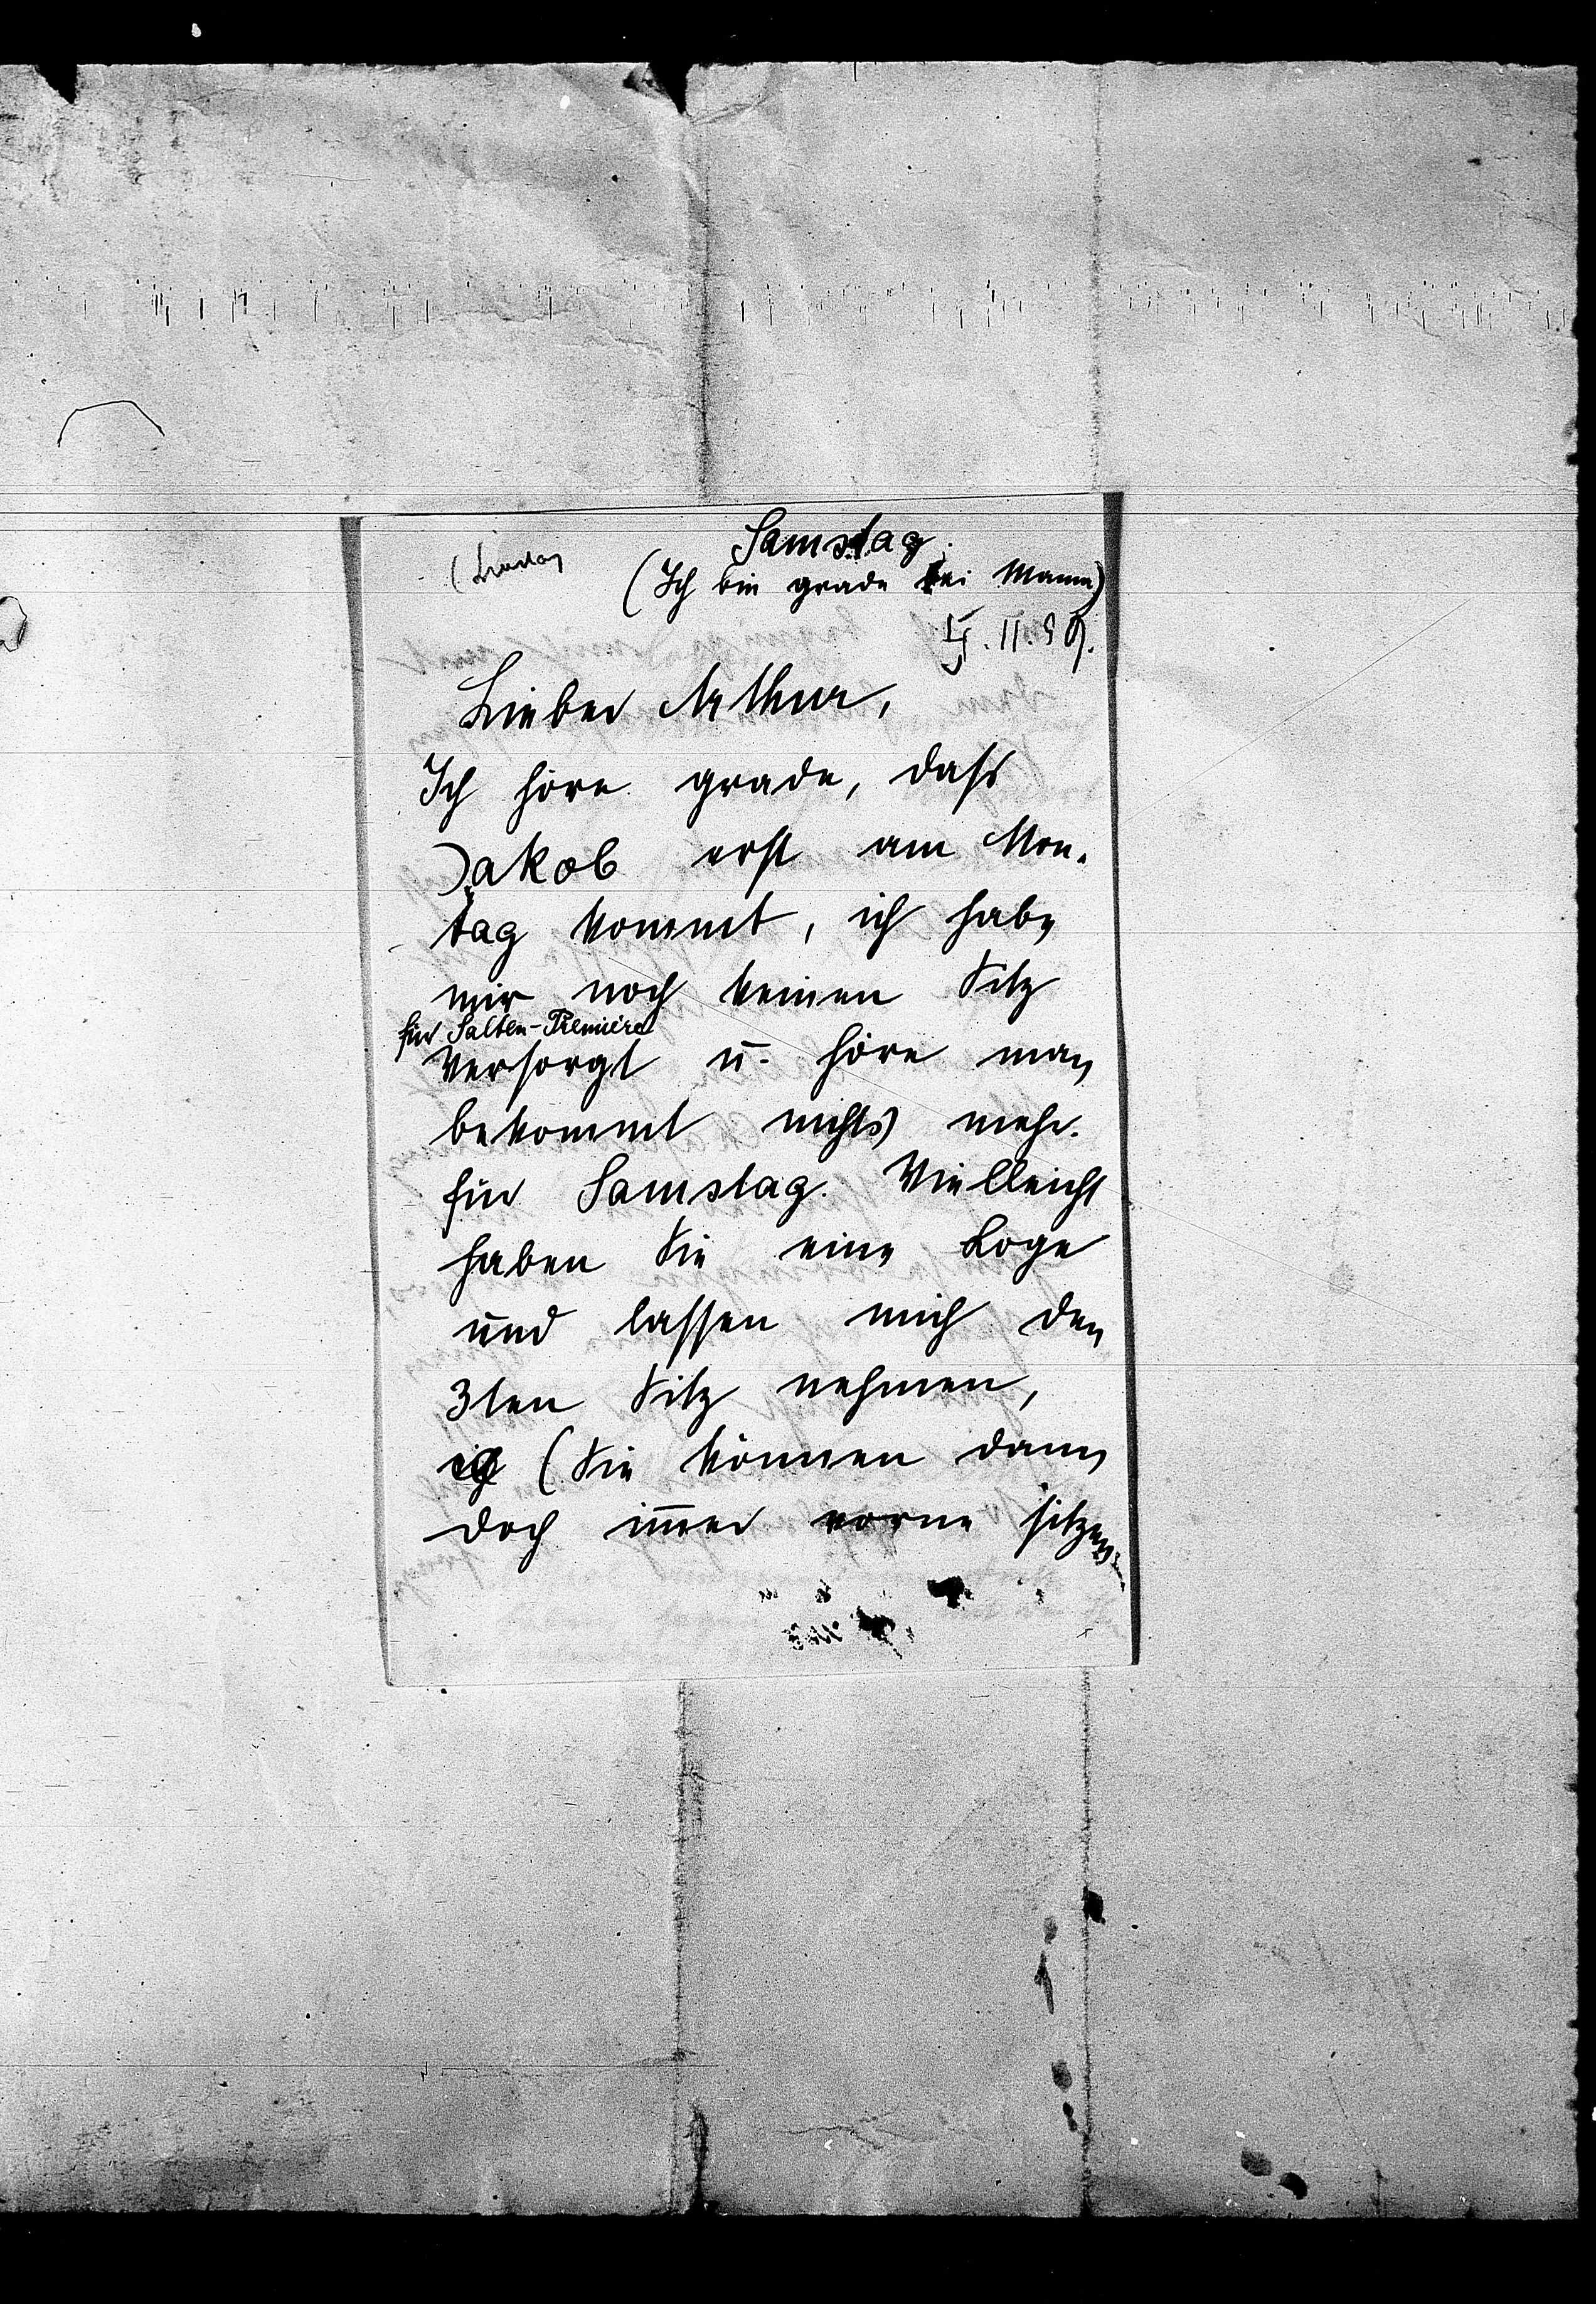 Samstag.
(Ich bin grade bei Mama)
II. 9
Lieber Arthur,
Ich höre grade, dass
Jakob erst am Mon-
tag kommt, ich habe
mir noch keinen Sitz
für Salten-Première
versorgt u. höre man
bekommt nichts mehr
für Samstag. Vielleicht
haben Sie eine Loge
und lassen mich den
3ten Sitz nehmen,
(Sie können dann
doch immer vorne sitzen